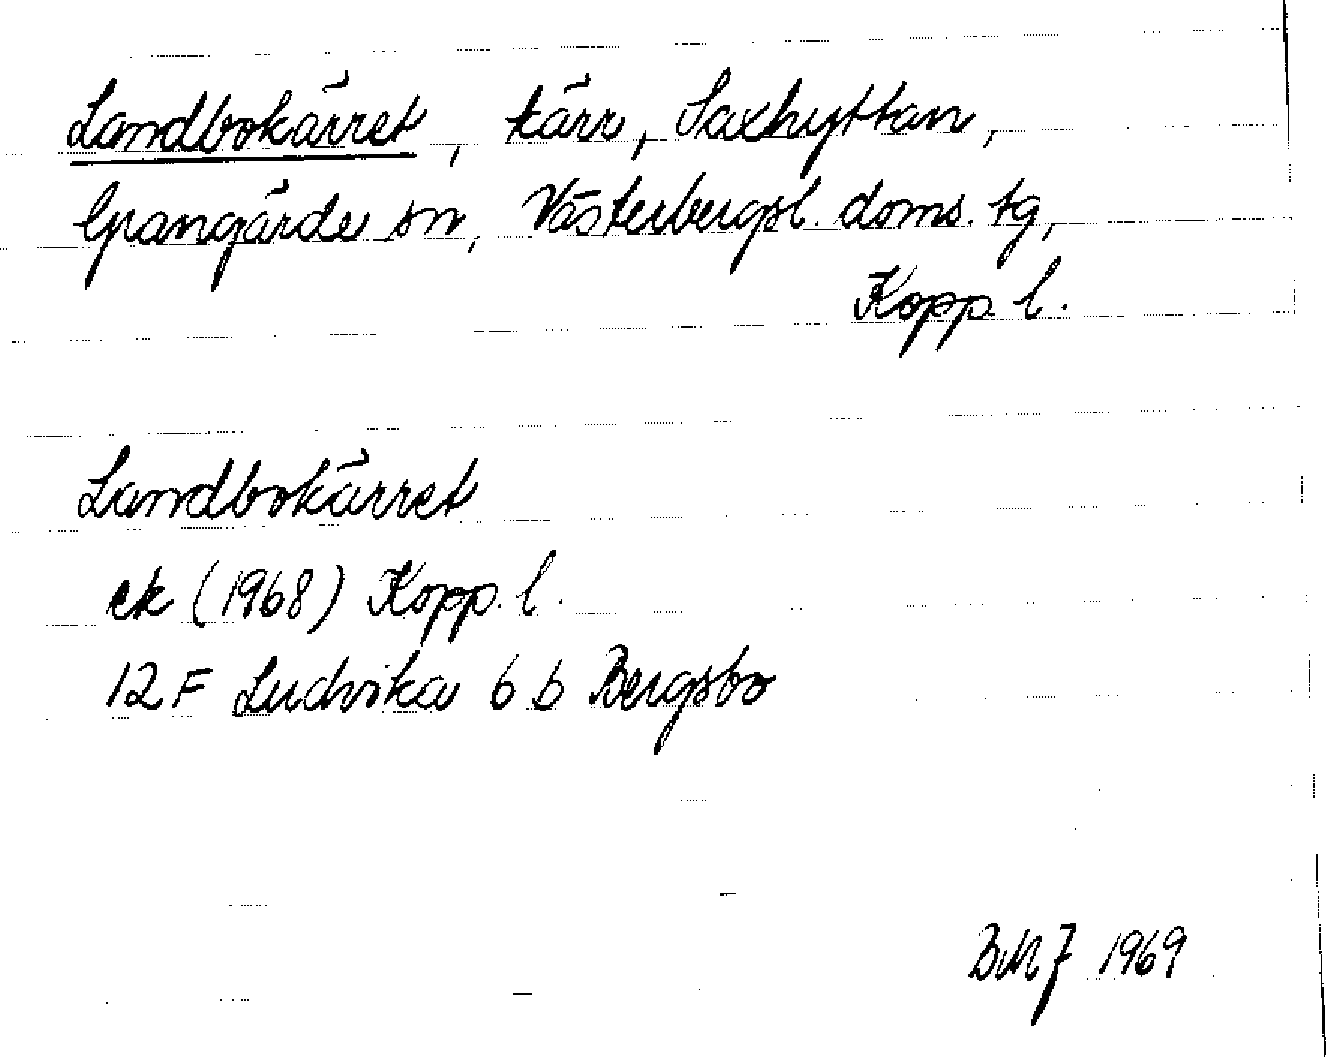 Landbokärret, kärr, Saxhyttan,
Grangärde sn, Västerbergsl. doms. tg,
Kopp. l.
Landbokärret
ek (1968) Kopp. l.
12 F Ludvika 6 b Bergsbo
BMJ 1969